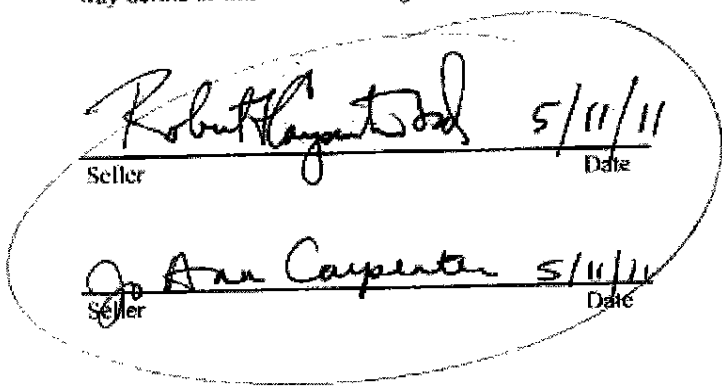 Robert Carpenter 5/11/11
Seller Date
Jo Ann Carpenter 5/11/11
Seller Date